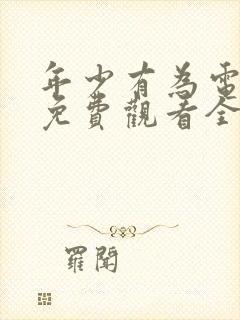 年少有為電
免費觀看全
羅聞